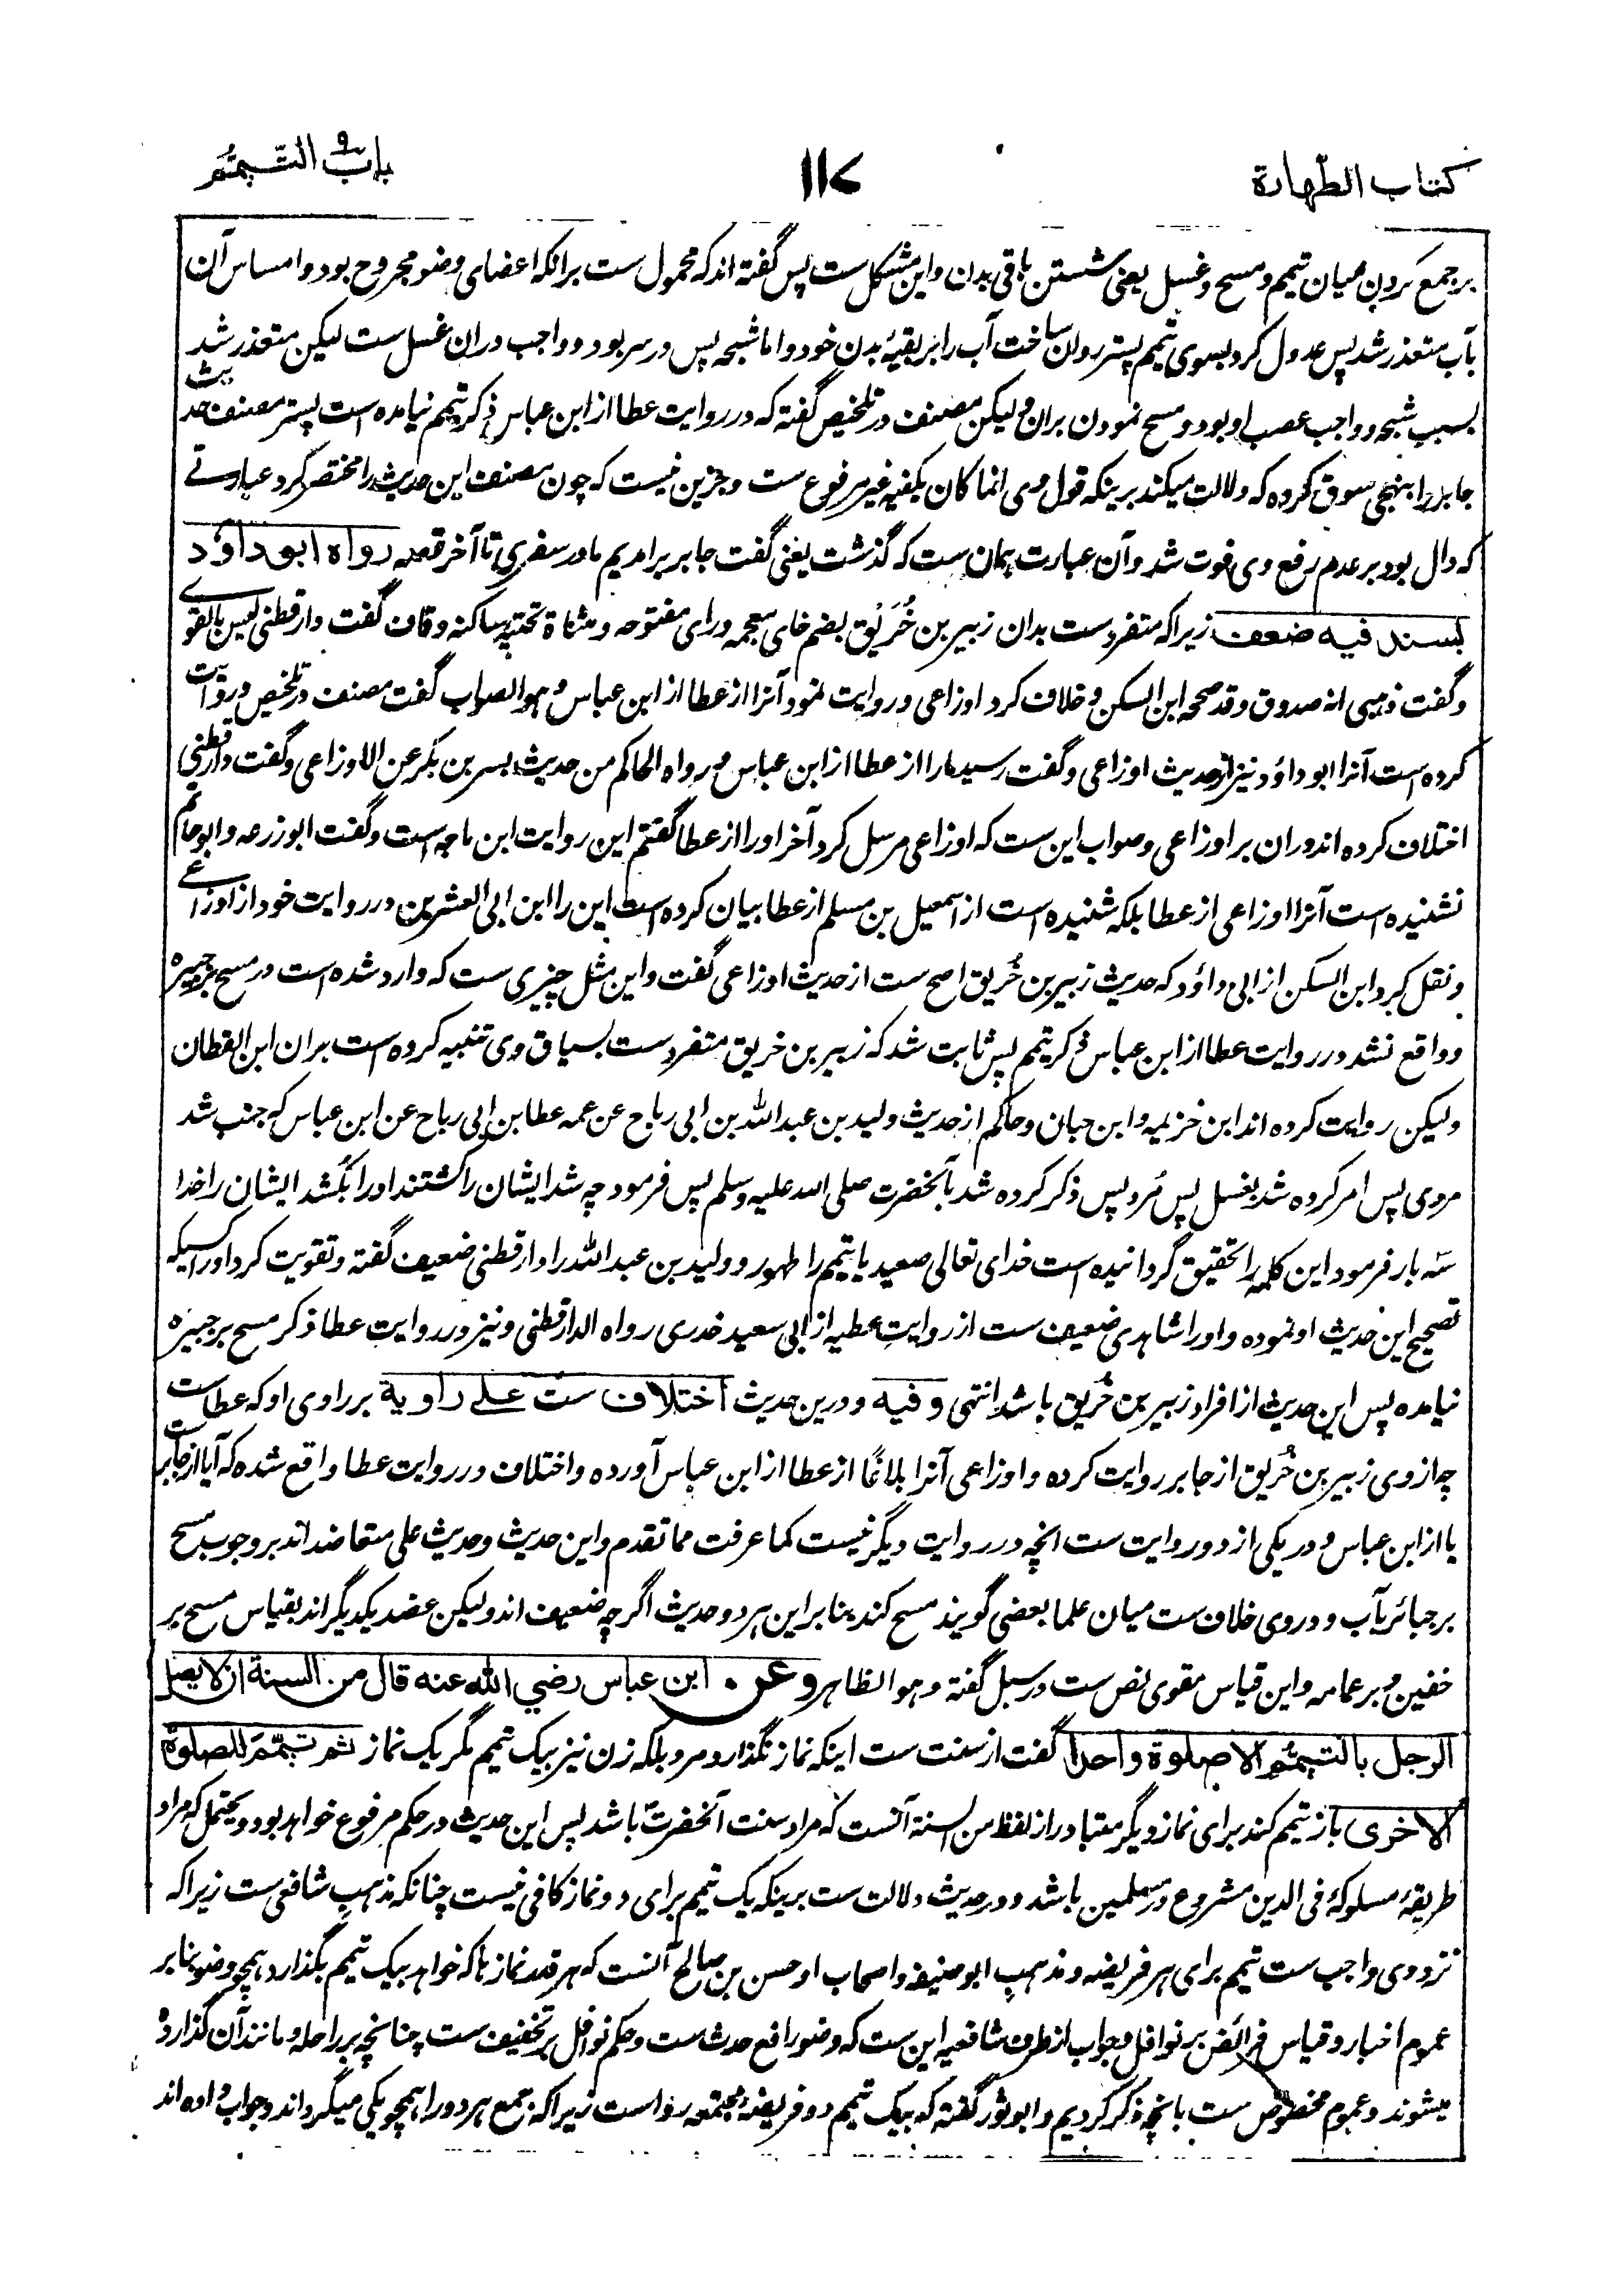 کتاب الطهارة
۱۱۷
باب التیمم
بر جمع کردن میان تیمم و مسح و غسل یعنی شستن باقی بدن و این مشکل ست پس گفته اند که محمول ست برانکه اعضای وضو مجروح بود و امساس آن
بآب متعذر شد پس عدول کرد بسوی تیمم پستر روان ساخت آب را بر بقیۀ بدن خود و اما شجه پس در سر بود و واجب دران غسل ست لیکن متعذر شد
بسبب شجه و واجب عصب او بود و مسح نمودن بران و لیکن مصنف در تلخیص گفته که در روایت عطا از ابن عباس ذکر تیمم نیامده است پستر مصنف حدیث
جابر را بنهجی سوق کرده که دلالت میکند برینکه قول وی انما کان یکفیه غیر مرفوع ست و جزین نیست که چون مصنف این حدیث را مختصر کرد عبارتے
که دال بود بر عدم رفع وی فوت شد و آن عبارت همان ست که گذشت یعنی گفت جابر برامدیم ما در سفری تا آخر قصه رواه ابو داؤد
بسند فیه ضعف زیرا که متفرد ست بدان زبیر بن خُرَیْق بضم خای معجمه و رای مفتوحه و مثناة تحتیه ساکنه و قاف گفت دارقطنی لیس بالقوے
و گفت ذهبی انه صدوق و قد صححه ابن السکن و خلاف کرد اوزاعی و روایت نمود آنرا از عطا از ابن عباس و هو الصواب گفت مصنف در تلخیص و روایت
کرده است آنرا ابو داؤد نیز از حدیث اوزاعی و گفت رسید مارا از عطا از ابن عباس و رواه الحاکم من حدیث بسر بن بکر عن الاوزاعی و گفت دارقطنی
اختلاف کرده اند دران بر اوزاعی و صواب این ست که اوزاعی مرسل کرد آخر او را از عطا گفتم این روایت ابن ماجه است و گفت ابو زرعه و ابو حاتم
نشنیده است آنرا اوزاعی از عطا بلکه شنیده است از اسمعیل بن مسلم از عطا بیان کرده است این را ابن ابی العشرین در روایت خود از اوزاعے
و نقل کرد ابن السکن از ابی داؤد که حدیث زبیر بن خُریق اصح ست از حدیث اوزاعی گفت و این مثل چیزی ست که وارد شده است در مسح بر جبیره
و واقع نشد در روایت عطا از ابن عباس ذکر تیمم پس ثابت شد که زبیر بن خریق متفرد ست بسیاق وی تنبیه کرده است بران ابن القطان
و لیکن روایت کرده اند ابن خزیمه و ابن حبان و حاکم از حدیث ولید بن عبد الله بن ابی رباح عن عمه عطا بن ابی رباح عن ابن عباس که جنب شد
مردی پس امر کرده شد بغسل پس مُرد پس ذکر کرده شد بآنحضرت صلی الله علیه و سلم پس فرمود چه شد ایشان را کشتند او را بکُشد ایشان را خدا
سَه بار فرمود این کلمه را تحقیق گردانیده است خدای تعالی صعید یا تیمم را طهور و ولید بن عبد الله را دارقطنی ضعیف گفته و تقویت کرد او را کسیکه
تصحیح این حدیث او نموده و او را شاهدی ضعیف ست از روایت عطیه از ابی سعید خدری رواه الدارقطنی و نیز در روایت عطا ذکر مسح بر جبیره
نیامده پس این حدیث از افراد زبیر بن خُریق باشد انتهی و فیه و درین حدیث اختلاف ست علے راویه بر راوی او که عطاست
چه از وی زبیر بن خُریق از جابر روایت کرده و اوزاعی آنرا بلاغًا از عطا از ابن عباس آورده و اختلاف در روایت عطا واقع شده که آیا از جابر ست
یا از ابن عباس و در یکی از دو روایت ست انچه در روایت دیگر نیست کما عرفت مما تقدم و این حدیث و حدیث علی متعاضد اند بر وجوب مسح
بر جبائر بآب و دروی خلاف ست میان علما بعضی گویند مسح کند بنا بر این هر دو حدیث اگر چه ضعیف اند و لیکن عضد یکدیگر اند بقیاس مسح بر
خفین و بر عمامه و این قیاس مقوی نص ست در سبل گفته و هو الظاهر وعن ابن عباس رضي الله عنه قال من السنة ان لا یصلی
الرجل بالتیمم الا صلوة واحدا گفت از سنت ست اینکه نماز نگذارد مرد بلکه زن نیز بیک تیمم مگر یک نماز ثم تیمّم للصلوة
الاخری باز تیمم کند برای نماز دیگر متبادر از لفظ من السنة آنست که مراد سنت آنحضرت باشد پس این حدیث در حکم مرفوع خواهد بود و یحتمل که مراد
طریقۀ مسلوکۀ فی الدین مشروع در مسلمین باشد و در حدیث دلالت ست برینکه یک تیمم برای دو نماز کافی نیست چنانکه مذهب شافعی ست زیرا که
نزد وی واجب ست تیمم برای هر فریضه و مذهب ابو حنیفه و اصحاب او حسن بن صالح آنست که هر قدر نماز ها که خواهد بیک تیمم بگذارد همچو وضو بنا بر
عموم اخبار و قیاس فرائض بر نوافل و جواب از طرف شافعیه این ست که وضو رافع حدث ست و حکم نوافل بر تخفیف ست چنانچه بر راحله و مانند آن گذارده
میشوند و عموم مخصوص ست بانچه ذکر کردیم و ابو ثور گفته که بیک تیمم دو فریضۀ مجتمعه رواست زیرا که جمع هر دو را همچو یکی میگرداند و جواب داده اند